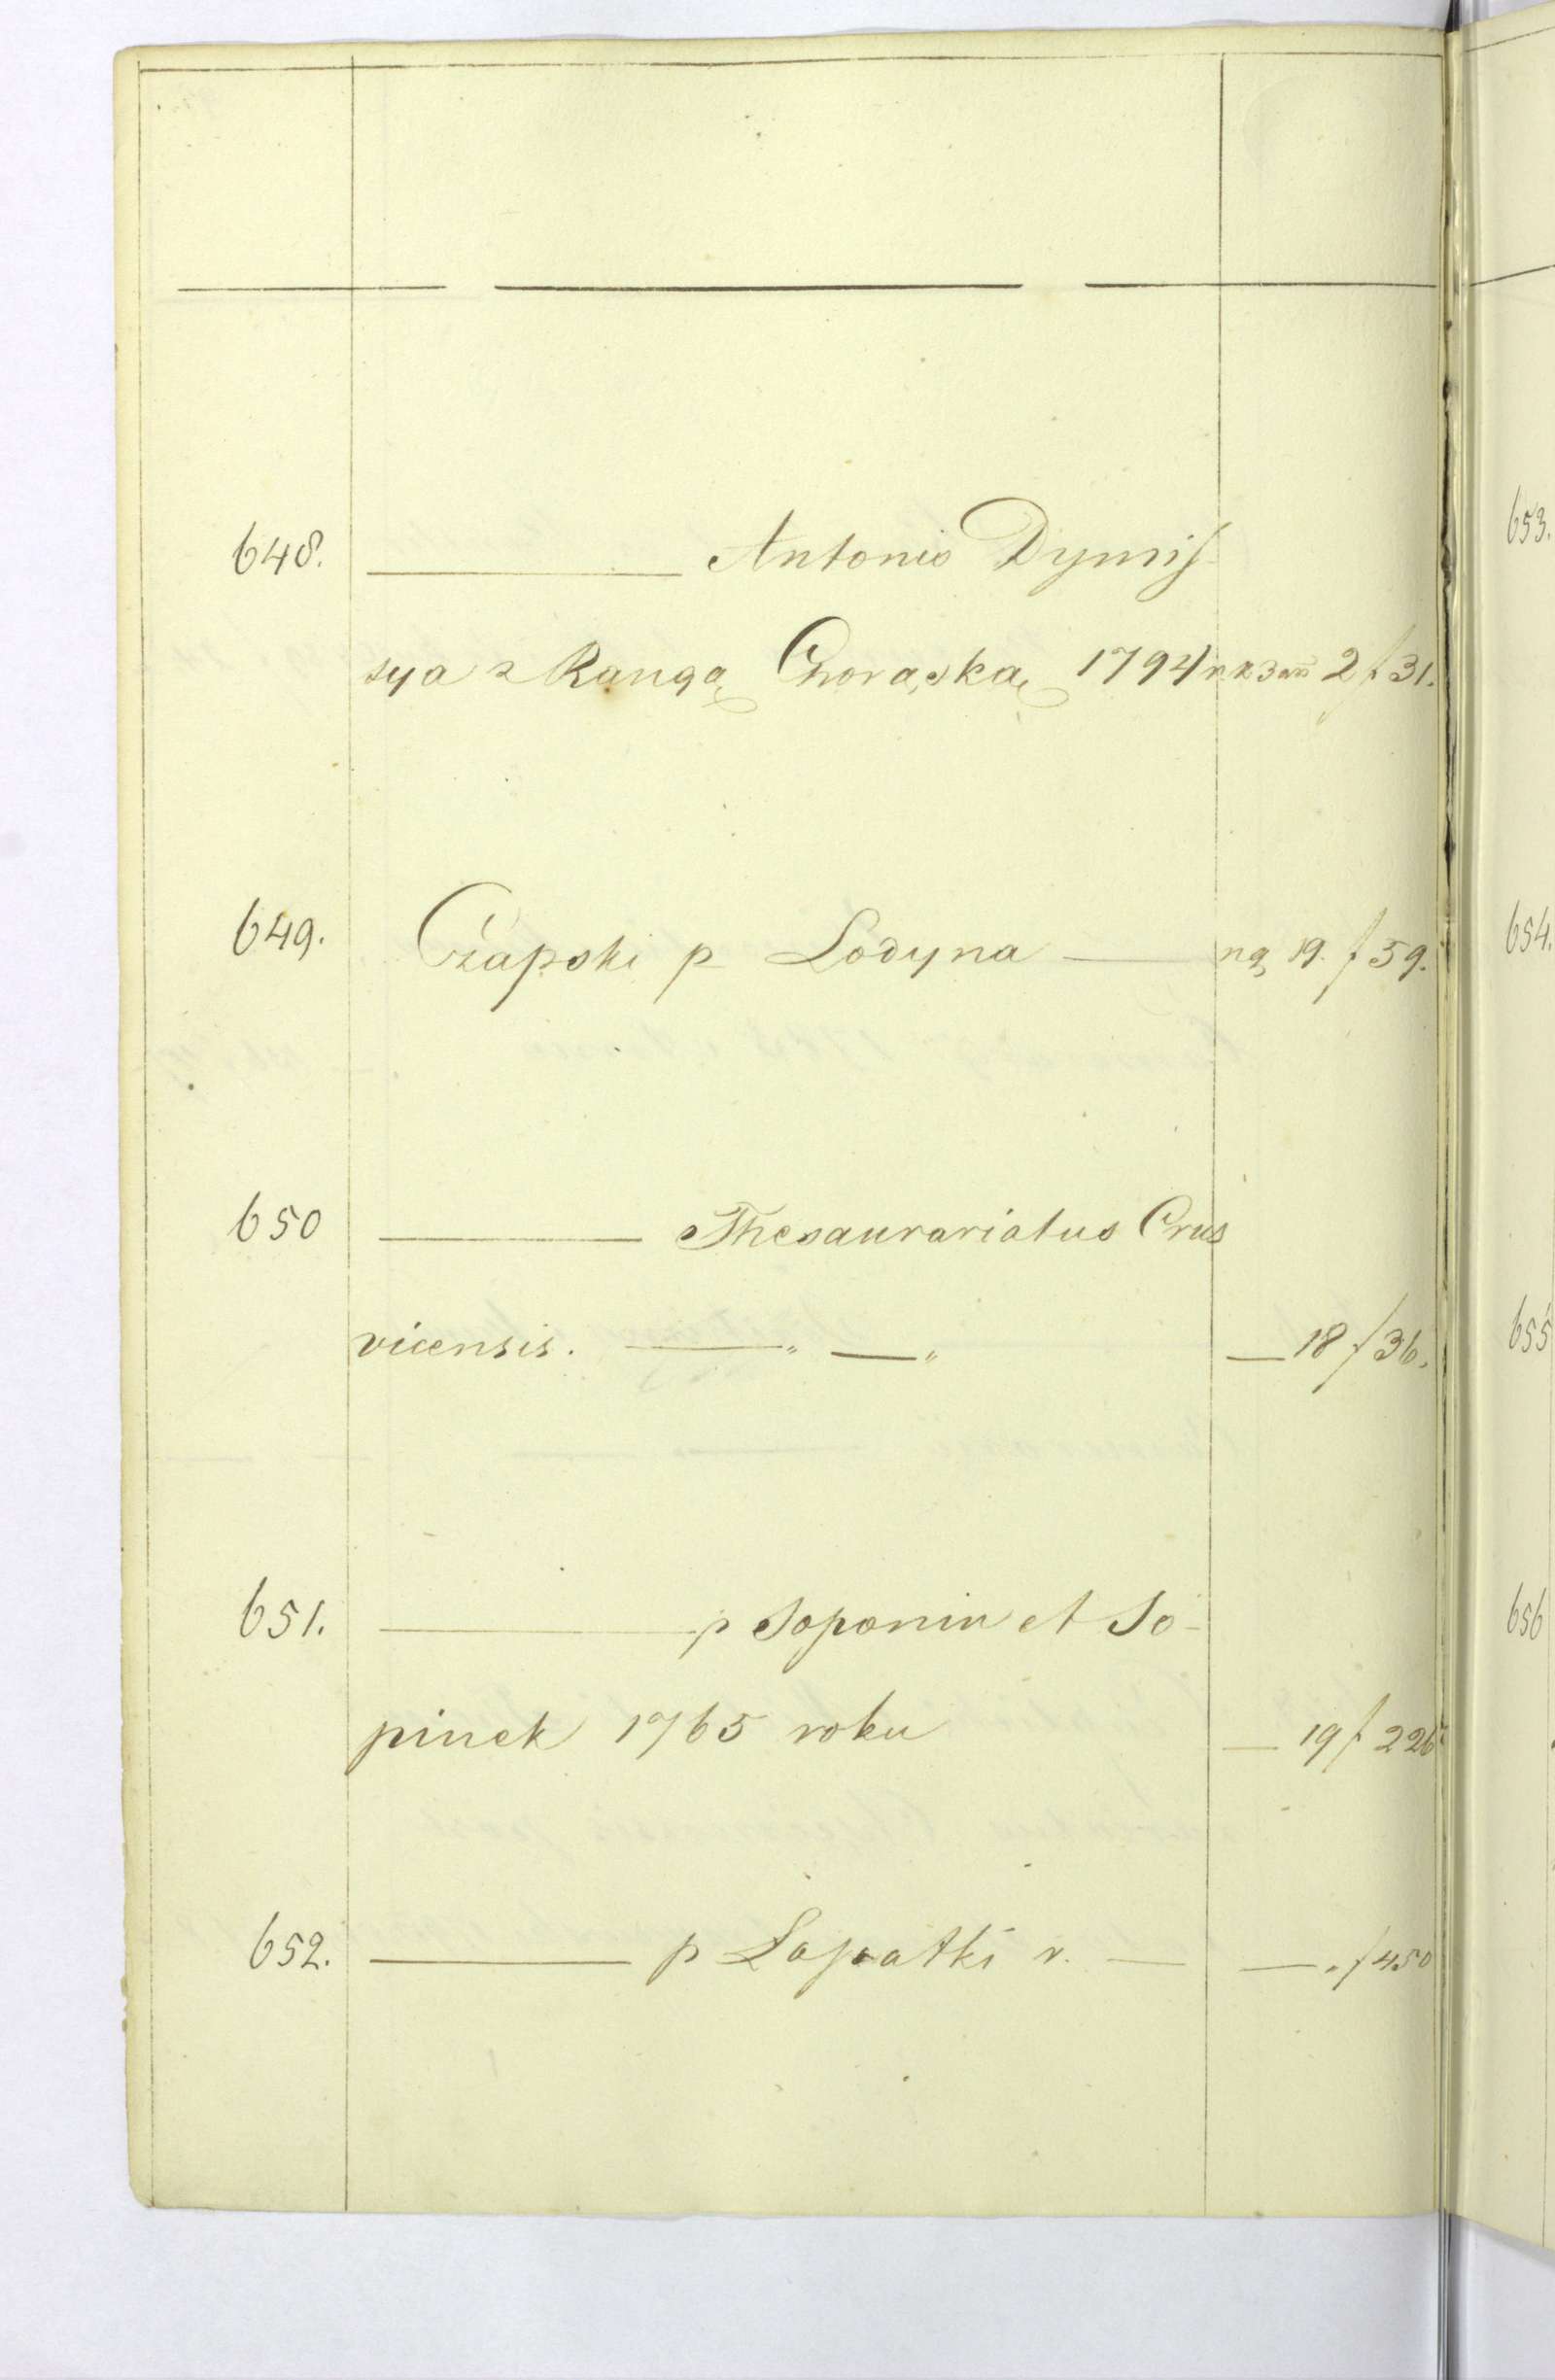 648. ——— Antonio Dymis-
sya z Rangą Chorąską 1794 r. 2 f 31.
649. Czapski p Lodyna — nq 19. f 59.
650 ——— Thesaurariatus Crus
vicensis. —„ —„ — 18 f 36.
651. ——— p Soponin et So-
pinek 1765 roku — 19 f 226
652. ——— p Lopatki r. — —„ f 450
653.
654.
655
656